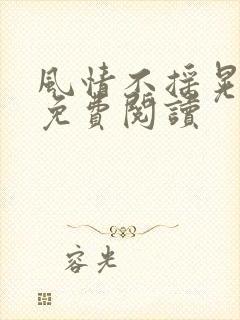 風情不搖晃
免費閱讀
容光